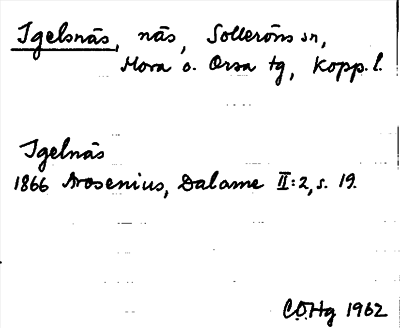 Igelsnäs, näs, Solleröns sn,
Mora o. Orsa tg, Kopp. l.
Igelnäs
1866 Arosenius, Dalarne II:2, s. 19.
CÖHg 1962